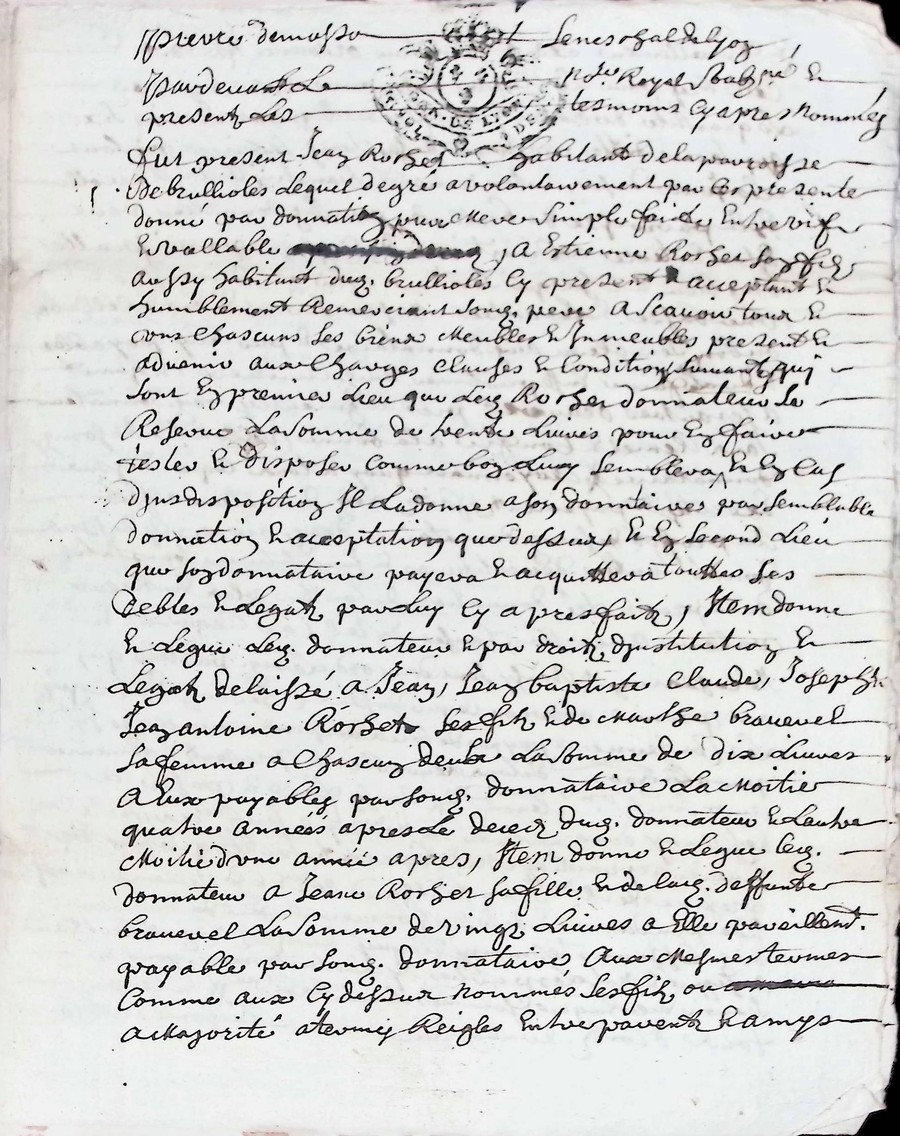 pardevant Le no.re Royal et
present Les tesmoins Cy apres Nommés
fut present Jean Rochet habitant de la parroisse
De brullioles Lequel de gré a volontairement par Ces presente
donné par donnation pure Mere Simple faite Entre vif
Et vallable a Estienne Rochet son fils
aussy habitant dud. brullioles Cy present acceptant et
humblement Remerciant Sond. pere A Scavoir tous et
uns Chascuns Ses biens Meubles et Immeubles present et
advenir aux Charges Clauses et Conditions Suivants qui
Sont En premier Lieu que Led. Rochet donnateur Se
Reserve La Somme de trente Livres pour En faire
tester et disposer Comme bon Luy Semblera, et En Cas
d'indisposition Il La donne a son donnaire par Semblable
donnation et acceptation que dessus, et En Second Lieu
que son donnataire payera et acquittera touttes Ses
Debtes et Legatz par Luy Cy apres faitz, Item donne
et Legue Led. donnateur et par droit d'institution et
Legatz delaissé a Jean, Jean baptiste Claude, Joseph et
Jean antoine Rochet Ses filz et de Marthe brauevel
Sa femme a Chascun deux La Somme de dix Livres
A Eux payables par Sond. donnataire La Moitie
quatre années apres Le deced dud. donnateur et Lautre
Moitié d'une année apres, Item donne et Legue Led.
donnateur A Jeane Rochet Sa fille et de lad. deffunte
brauevel La Somme de vingt Livres a Elle pareillemt.
payable par Sond. donnataire Aux Mesmes termes
Comme aux Cy dessus Nommés Ses filz ou
a Majorité a termes Reigles Entre parents et amys